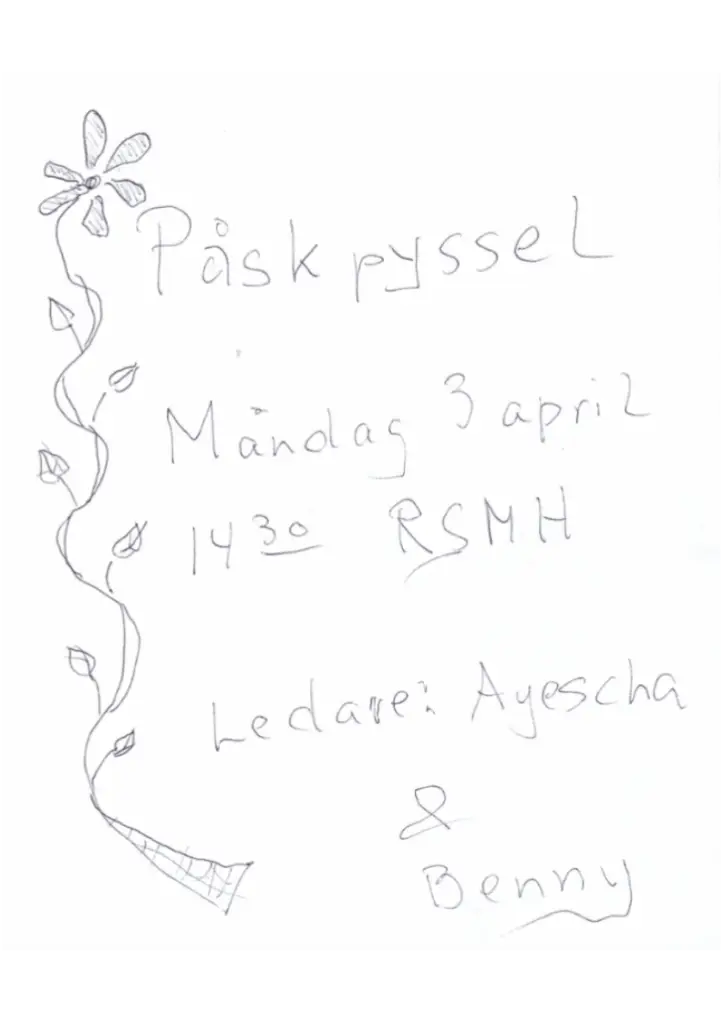 Påskpyssel
Måndag 3 april
14 30 RSMH
Ledare: Ayescha
&
Benny